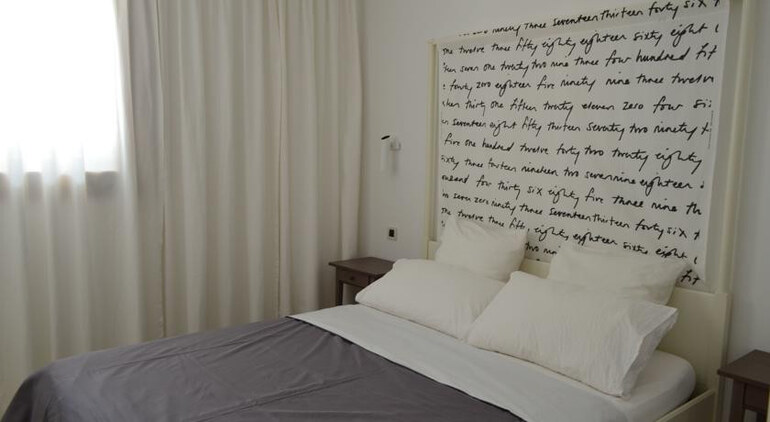 two zero ninety three seventeen thirteen forty six
the twelve three fifty eighty eighteen sixty eight
seven one twenty two nine three four hundred
forty zero eighteen five ninety nine three twelve
thirty one fifteen twenty eleven zero four six
seventeen eight fifty thirteen seventy two ninety
five one hundred twelve forty two twenty eighty
sixty three forteen nineteen two seven nine eighteen
for thirty six eighty five three nine
two seven zero ninety three seventeen thirteen forty six
the twelve three fifty eighty eighteen sixty eight
two nine